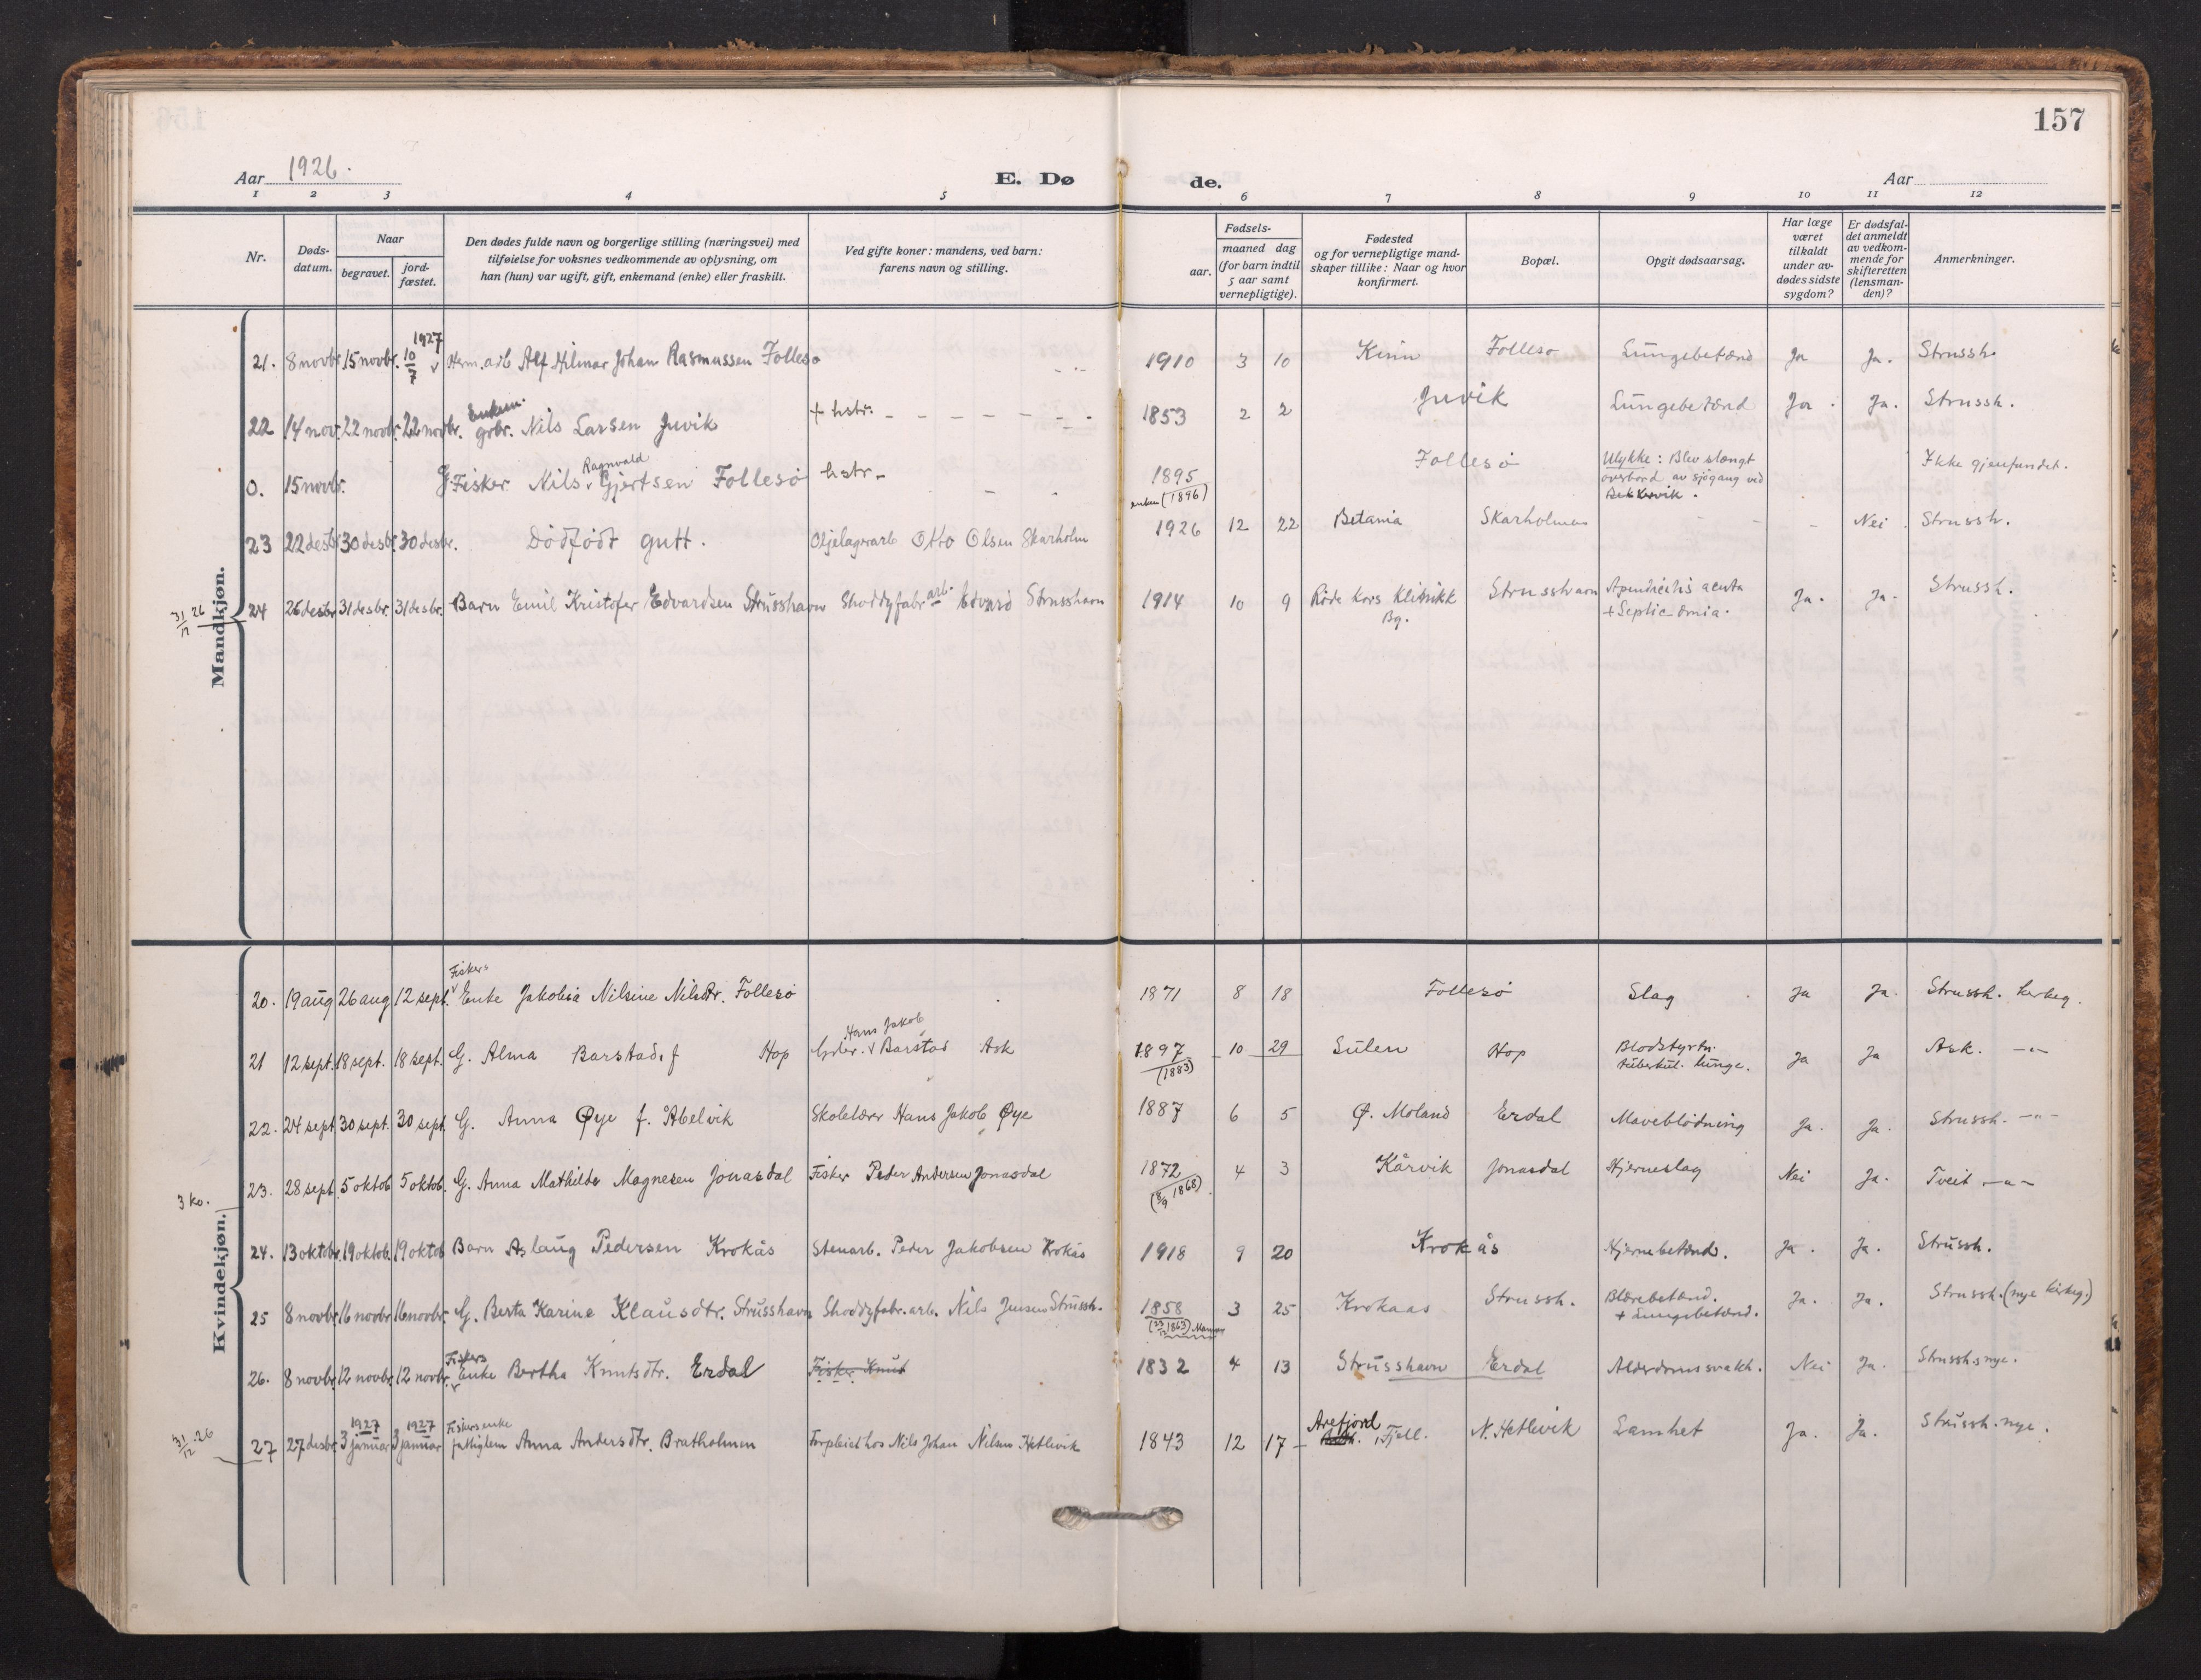 157
Aar 1926.
E. Dø de.
Aar
1 2 3 4 5 6 7 8 9 10 11 12
Nr.
Døds-
datum.
Naar
begravet.
jord-
fæstet.
Den dødes fulde navn og borgerlige stilling (næringsvei) med
tilføielse for voksnes vedkommende av oplysning, om
han (hun) var ugift, gift, enkemand (enke) eller fraskilt.
Ved gifte koner: mandens, ved barn:
farens navn og stilling.
Fødsels-
aar.
maaned dag
(for barn indtil
5 aar samt
vernepligtige).
Fødested
og for vernepligtige mand-
skaper tillike: Naar og hvor
konfirmert.
Bopæl.
Opgit dødsaarsag.
Har læge
været
tilkaldt
under av-
dødes sidste
sygdom?
Er dødsfal-
det anmeldt
av vedkom-
mende for
skifteretten
(lensman-
den)?
Anmerkninger.
Mandkjøn.
1927
21. 8 novbr. 15 novbr. 10/7 Herm. arb Alf Hilmar Johan Rasmussen Follesø 1910 3 10 Kinn Follesø Lungebetænd Ja Ja. Strussh.
Enkem.
22 14 nov. 22 novbr. 22 novbr. gbr. Nils Larsen Juvik + hstr. 1853 2 2 Juvik Lungebetænd Ja. Ja. Strussh.
Ragnvald
0. 15 novbr. G Fisker Nils Gjertsen Follesø hstr. 1895 Follesø Ulykke: Blev slængt Ikke gjenfundet.
(1896) overbord av sjøgang ved
Bekkervik.
23 22 desbr 30 desbr. 30 desbr. Dødfødt gutt. Oljelagerarb Otto Olsen Skarholm 1926 12 22 Betania Skarholmen - - Nei Strussh.
31/12 26
24 26 desbr 31 desbr. 31 desbr. Barn Emil Kristofer Edvardsen Strusshavn Shoddyfabr arb. Edvard Strusshavn 1914 10 9 Røde kors klinikk Strusshavn Apendicitis acuta Ja. Ja. Strussh.
Bg. + Septicæmia.
Kvindekjøn.
Fiskers
20. 19 aug 26 aug 12 sept. Enke Jakobia Nilsine Nilsdtr. Follesø 1871 8 18 Follesø Slag Ja Ja. Strussh. kirkeg.
Hans Jakob
21 12 sept. 18 sept. 18 sept. G. Alma Barstad, f Hop Barstad Ask 1897 10 29 Sulen Hop Blodstyrtn. Ja Ja Ask. -"-
(1883) tuberkul. lunge.
22. 24 sept 30 sept. 30 sept. G. Anna Øye f. Abelvik Skolelærer Hans Jakob Øye 1887 6 5 Ø. Moland Erdal Maveblødning Ja. Ja. Strussh. -"-
3 ko.
23. 28 sept. 5 oktob 5 oktob. G. Anna Mathilde Magnesen Jonasdal Fisker Peder Andersen Jonasdal 1872 4 3 Kårvik Jonasdal Hjerneslag Nei Ja. Tveit -"-
(8/9 1868)
24. 13 oktobr. 19 oktob. 19 oktob Barn Aslaug Pedersen Krokås Stenarb. Peder Jakobsen Krokås 1918 9 20 Krokås Hjernebetænd. Ja. Ja. Strussh.
25 8 novbr. 16 novbr. 16 novbr. G. Berta Karine Klausdtr. Strusshavn Shoddyfabr. arb. Nils Jensen Strussh. 1858 3 25 Krokaas Strussh. Blærebetænd. Ja. Ja. Strussh. (nye kirkeg.)
+ Lungebetænd.
Fiskers
26. 8 novbr. 12 novbr. 12 novbr. Enke Bertha Knutsdtr. Erdal Fisker Knut 1832 4 13 Strusshavn Erdal Alderdomssvakh. Nei Ja. Strussh. nye.
31/12 26
1927 1927 Fiskersenke Arefjord
27 27 desbr. 3 januar 3 januar fattiglem Anna Andersdtr. Bratholmen Forpleiet hos Nils Johan Nilsen Hetlevik 1843 12 17 Fjell. N. Hetlevik Lamhet Ja. Ja. Strussh. nye.